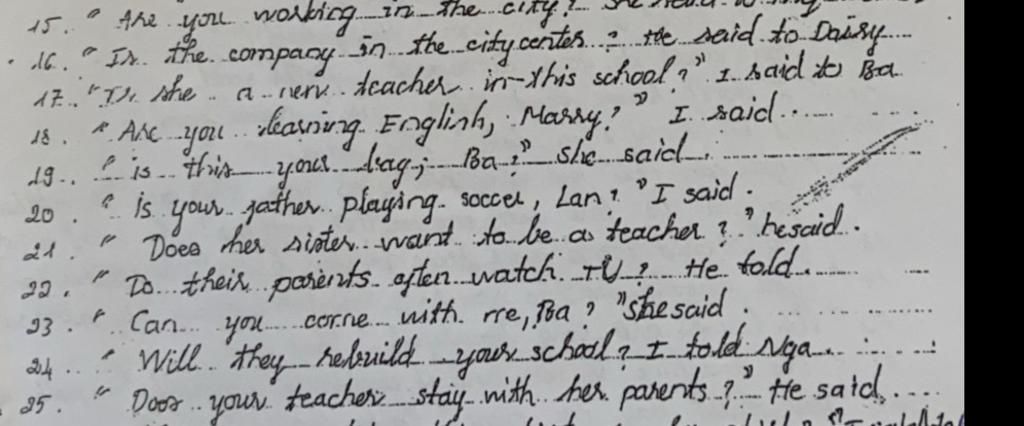 15. " Are you working in the city? She
16. " Is the company in the city center? He said to Daisy
17. "Is she a new teacher in this school?" I said to Ba
18. " Are you learning English, Marry?" I said
19. " is this your bag, Ba?" she said.
20. " is your father playing soccer, Lan?" I said.
21. " Does her sister want to be a teacher?" he said.
22. " Do their parents often watch TV? He told
23. " Can you come with me, Ba?" she said.
24. " Will they rebuild your school? I told Nga
25. " Does your teacher stay with her parents?" He said.